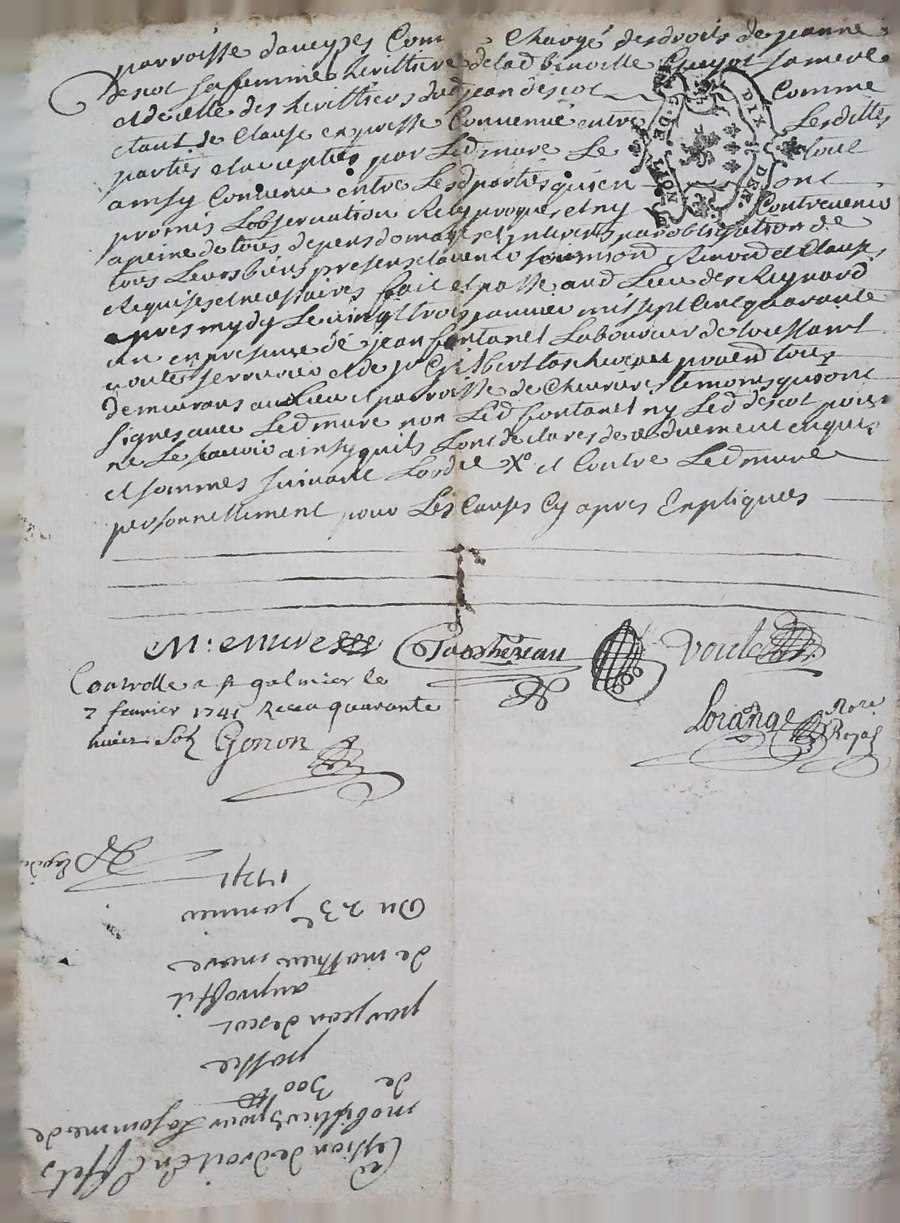 parroisse daveyzes Com chargé des droits de jeanne
descot sa femme heritiere de lad benoitte Guyot sa mere
et de elle des heritiers dud jean descot Comme
etant de clause expresse Convenue entre Lesdittes
parties et acceptés par Led mure Le tout
ainsy Convenu entre Lesd parties qui en ont
promis Lobservation Reciproque et ny Contrevenir
a peine de tous depens domages et interets par obligation de
tous Leurs biens presens et avenir soumission Renond et Clauses
Requises et necessaires fait et passé aud Lieu des Reynard
apres mydy Le vingt trois janvier mil sept Cent quarante
un en presence de jean fontanel Laboureur de toussaint
voute serrurier et de sr Gilbert tacherau tous
demeurans au Lieu et parroisse de Chevrieres temoins qui ont
signes avec Led mure non Led fontanel ny Led descot pour
ne Le scavoir ainsy quils Lont declares de ce duement enquis
et sommes suivant Lordce Xo et Contre Led mure
personnellement pour Les Causes Cy apres Expliquees
G. DE LYON
DIX DEN.
M: Mure
Tascherau
Voute
Controlle a st galmier le
2 fevrier 1741 Receu quarante
huit sols Gonon
Lorange Nore
Royal
Cession de droit en Effets
mobilliers pour la somme de
de 300 tt
passée
par jean descot
au proffit
de mathieu mure
Du 23e janvier
1741